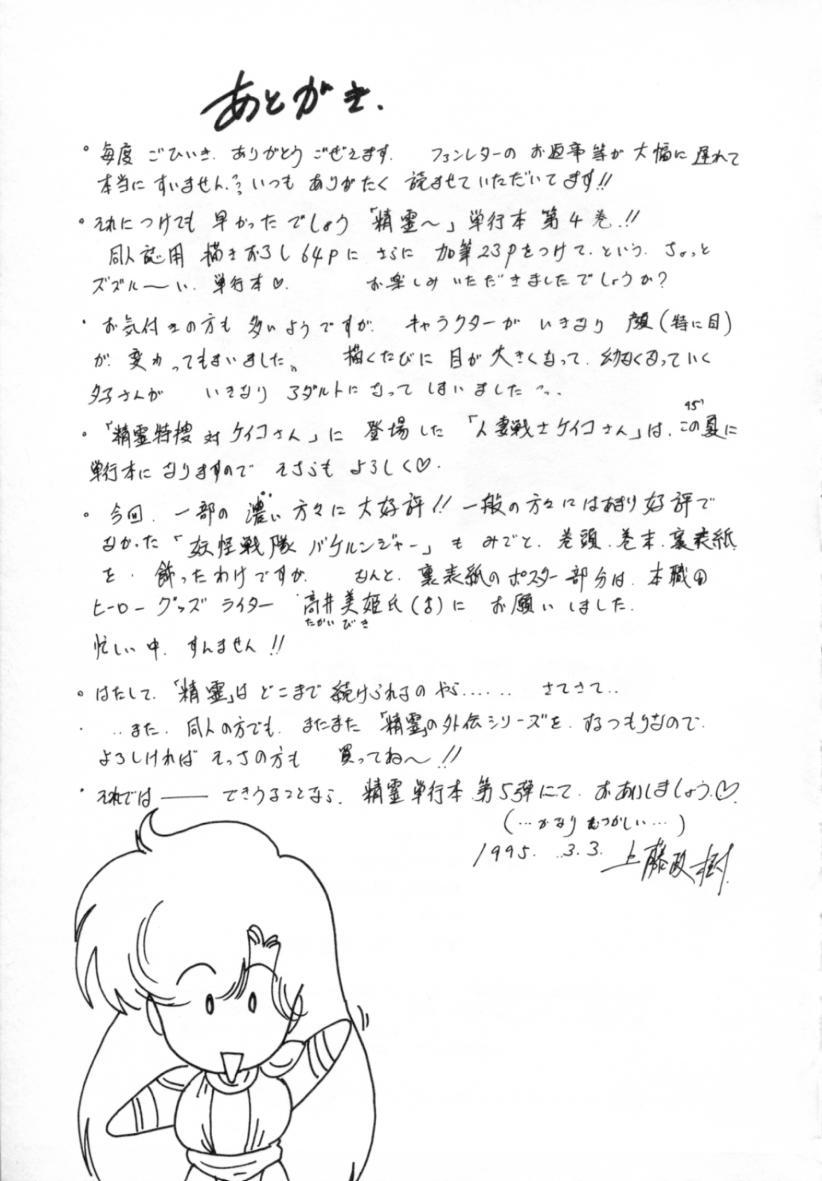 あとがき.
。毎度 ごひいき、ありがとう ごぜえます. ファンレターの お返事等が 大幅に 遅れて
本当に すいません。いつも ありがたく 読ませていただいてます!!
・それにつけても 早かったでしょう「精霊〜」単行本 第4巻!!
同人誌用 描きおろし64Pに さらに 加筆23Pをつけて、という、ちょっと
ズズル〜い、単行本♡. お楽しみ いただきましたでしょうか?
・お気付きの方も 多いようですが、キャラクターが いきなり 顔(特に目)
が、変わってしまいました。 描くたびに 目が 大きくなって、幼くなっていく
夕子さんが いきなり アダルトに なって しまいました
・「精霊特捜 対 ケイコさん」に 登場した「人妻戦士ケイコさん」は、この夏に
95'
単行本に なりますので そちらも よろしく♡.
。今回、一部の 濃い 方々に 大好評!! 一般の方々には あまり 好評で
なかった「妖怪戦隊 バケルンジャー」も みごと、巻頭、巻末、裏表紙
を、飾ったわけですが、 なんと、裏表紙の ポスター部分は、本職の
ヒーローグッズ ライター 高井美姫氏(♀)に お願いしました.
たかい びき
忙しい中、すんません!!
。はたして、「精霊」は どこまで 続けられるの やら…… さてさて..
・..また、同人の方でも、またまた「精霊」の 外伝シリーズを、するつもりなので、
よろしければ そっちの方も 買ってね〜!!
・それでは―― できうることなら、精霊単行本 第5弾にて、おあいしましょう♡.
(…かなり むつかしい…)
1995. 3.3. 上藤政樹